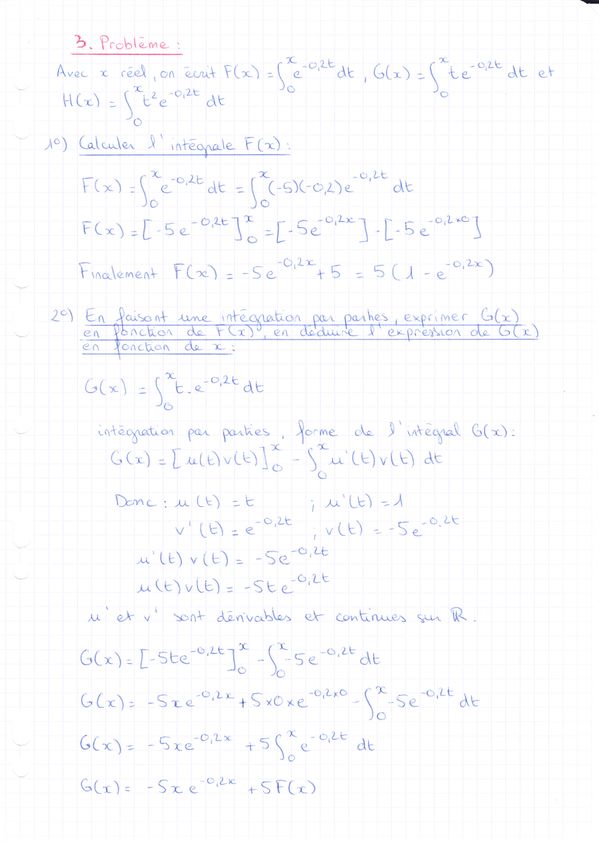 3. Problème :
Avec x réel, on écrit F(x) = ∫₀ˣ e^{-0,2t} dt, G(x) = ∫₀ˣ t e^{-0,2t} dt et
H(x) = ∫₀ˣ t² e^{-0,2t} dt
1°) Calculer l'intégrale F(x) :
F(x) = ∫₀ˣ e^{-0,2t} dt = ∫₀ˣ (-5)(-0,2) e^{-0,2t} dt
F(x) = [-5e^{-0,2t}]₀ˣ = [-5e^{-0,2x}] - [-5e^{-0,2×0}]
Finalement F(x) = -5e^{-0,2x} + 5 = 5(1 - e^{-0,2x})
2°) En faisant une intégration par parties, exprimer G(x)
en fonction de F(x), en déduire l'expression de G(x)
en fonction de x :
G(x) = ∫₀ˣ t.e^{-0,2t} dt
intégration par parties, forme de l'intégral G(x) :
G(x) = [u(t)v(t)]₀ˣ - ∫₀ˣ u'(t)v(t) dt
Donc : u(t) = t ; u'(t) = 1
v'(t) = e^{-0,2t} ; v(t) = -5e^{-0.2t}
u'(t) v(t) = -5e^{-0,2t}
u(t)v(t) = -5te^{-0,2t}
u' et v' sont dérivables et continues sur ℝ.
G(x) = [-5te^{-0,2t}]₀ˣ - ∫₀ˣ -5e^{-0,2t} dt
G(x) = -5xe^{-0,2x} + 5×0×e^{-0,2×0} - ∫₀ˣ -5e^{-0,2t} dt
G(x) = -5xe^{-0,2x} + 5∫₀ˣ e^{-0,2t} dt
G(x) = -5x e^{-0,2x} + 5F(x)